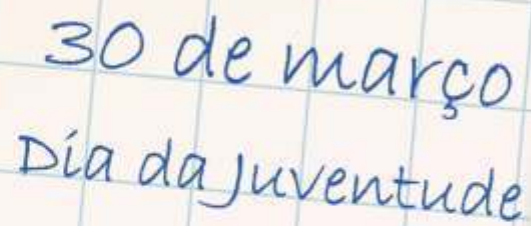 30 de março
Dia da Juventude